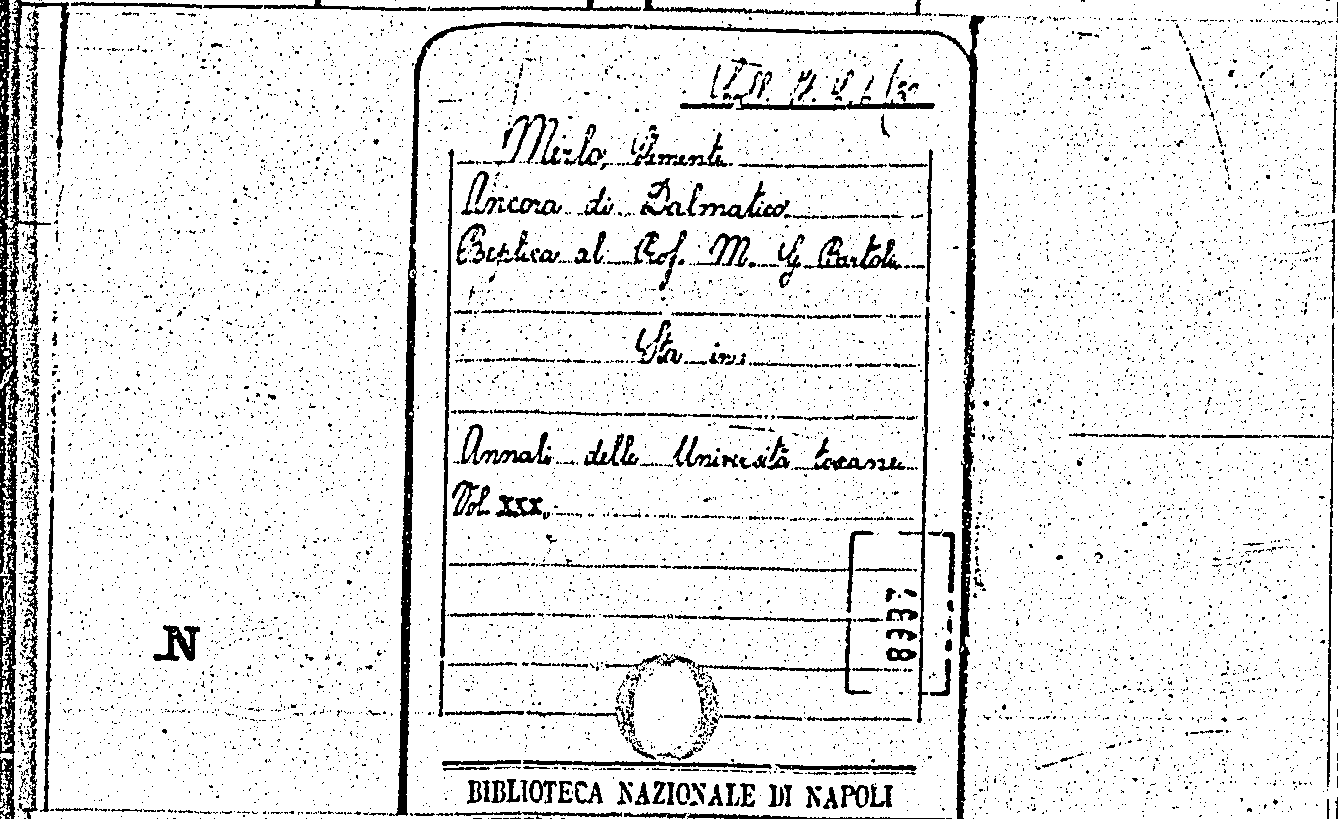 Merlo, Clemente
Ancora di Dalmatico
Replica al Prof. M. G. Bartoli
Sta in:
Annali delle Università toscane
Vol. XXX.
8337
N
BIBLIOTECA NAZIONALE DI NAPOLI